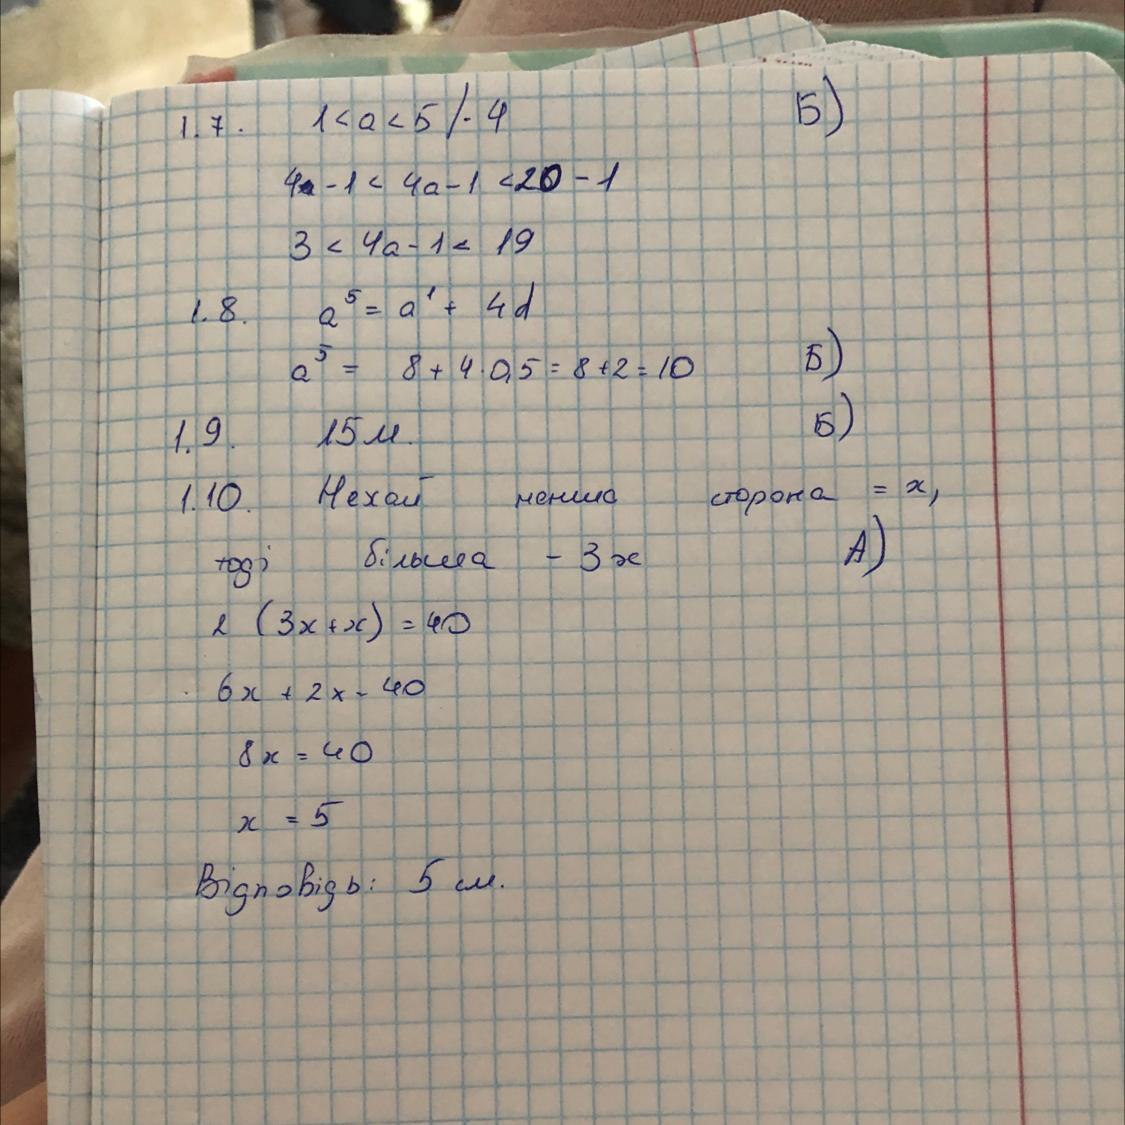 1.7. 1 < a < 5 /· 4 Б)
4 - 1 < 4a - 1 < 20 - 1
3 < 4a - 1 < 19
1.8. a⁵ = a¹ + 4d
a⁵ = 8 + 4 · 0,5 = 8 + 2 = 10 Б)
1.9. 15 м. Б)
1.10. Нехай менша сторона = x,
тоді більша - 3x А)
2 (3x + x) = 40
6x + 2x = 40
8x = 40
x = 5
Відповідь: 5 см.